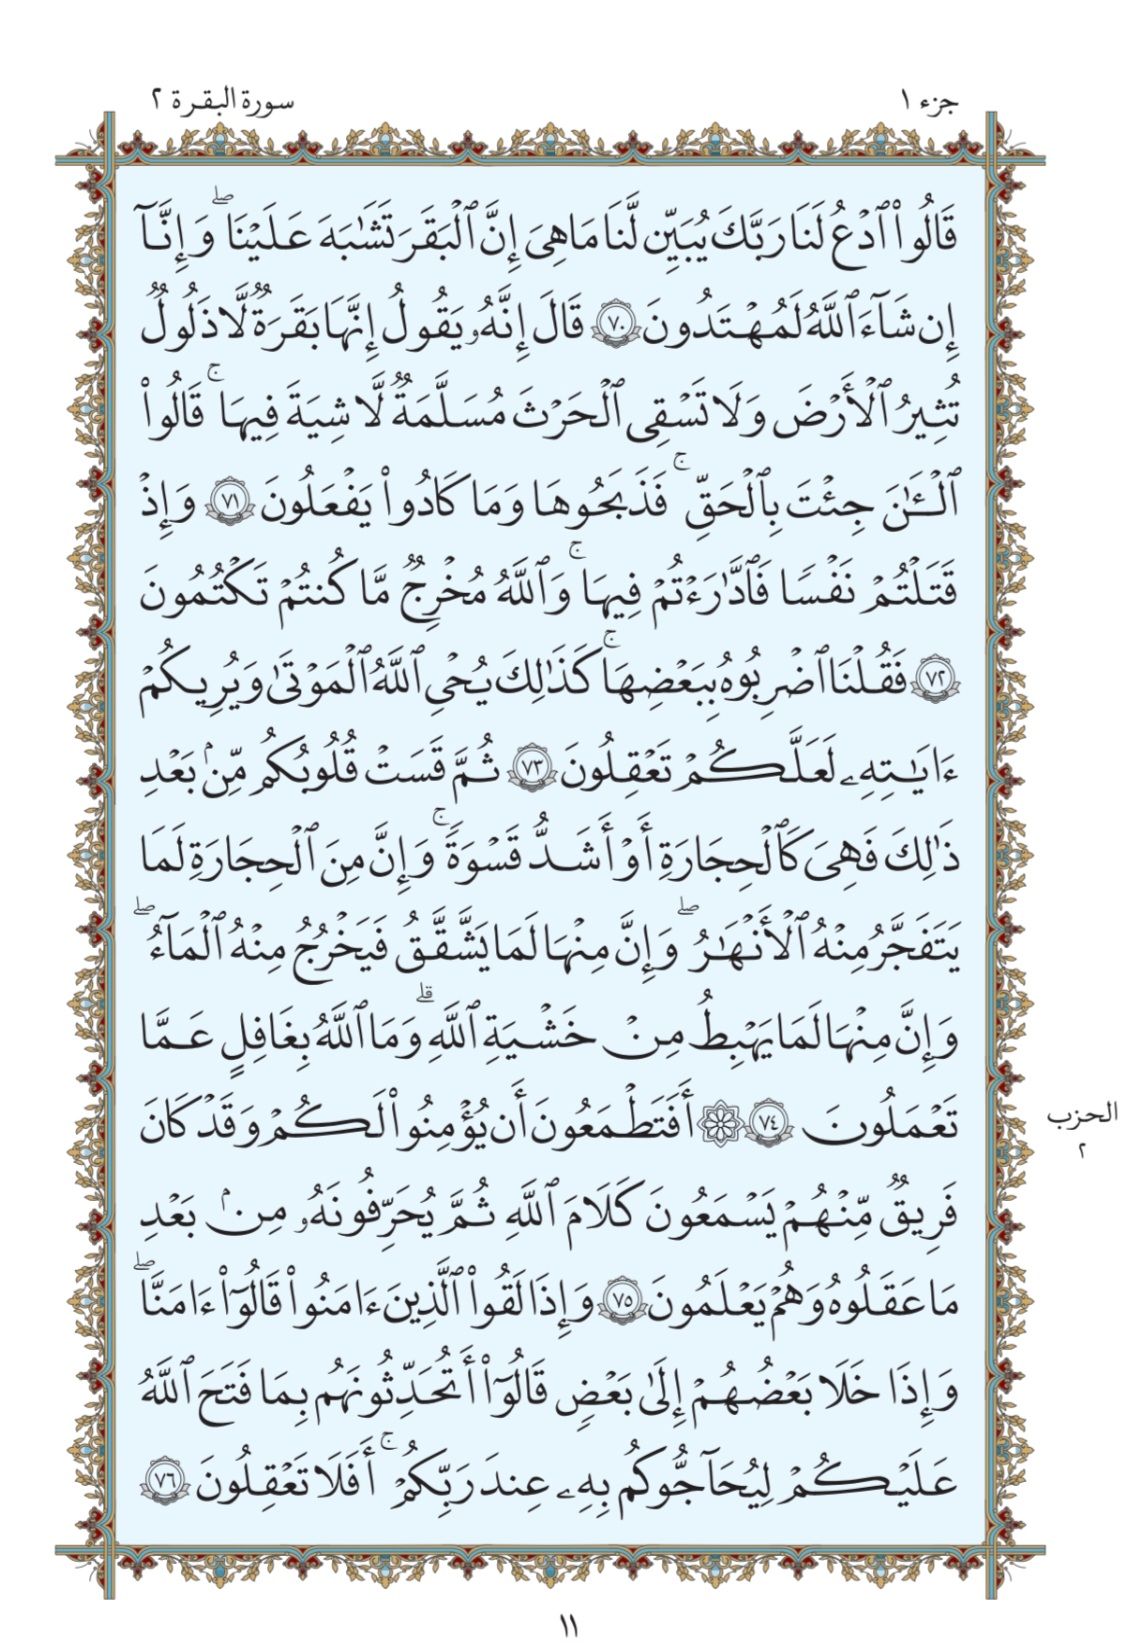 جزء ١
سورة البقرة ٢
قَالُواْ ٱدۡعُ لَنَا رَبَّكَ يُبَيِّن لَّنَا مَا هِيَ إِنَّ ٱلۡبَقَرَ تَشَٰبَهَ عَلَيۡنَاۖ وَإِنَّآ
إِن شَآءَ ٱللَّهُ لَمُهۡتَدُونَ ٧٠ قَالَ إِنَّهُۥ يَقُولُ إِنَّهَا بَقَرَةٞ لَّا ذَلُولٞ
تُثِيرُ ٱلۡأَرۡضَ وَلَا تَسۡقِي ٱلۡحَرۡثَ مُسَلَّمَةٞ لَّا شِيَةَ فِيهَاۚ قَالُواْ
ٱلۡـَٰٔنَ جِئۡتَ بِٱلۡحَقِّۚ فَذَبَحُوهَا وَمَا كَادُواْ يَفۡعَلُونَ ٧١ وَإِذۡ
قَتَلۡتُمۡ نَفۡسٗا فَٱدَّٰرَٰٔتُمۡ فِيهَاۚ وَٱللَّهُ مُخۡرِجٞ مَّا كُنتُمۡ تَكۡتُمُونَ
٧٢ فَقُلۡنَا ٱضۡرِبُوهُ بِبَعۡضِهَاۚ كَذَٰلِكَ يُحۡيِ ٱللَّهُ ٱلۡمَوۡتَىٰ وَيُرِيكُمۡ
ءَايَٰتِهِۦ لَعَلَّكُمۡ تَعۡقِلُونَ ٧٣ ثُمَّ قَسَتۡ قُلُوبُكُم مِّنۢ بَعۡدِ
ذَٰلِكَ فَهِيَ كَٱلۡحِجَارَةِ أَوۡ أَشَدُّ قَسۡوَةٗۚ وَإِنَّ مِنَ ٱلۡحِجَارَةِ لَمَا
يَتَفَجَّرُ مِنۡهُ ٱلۡأَنۡهَٰرُۖ وَإِنَّ مِنۡهَا لَمَا يَشَّقَّقُ فَيَخۡرُجُ مِنۡهُ ٱلۡمَآءُۖ
وَإِنَّ مِنۡهَا لَمَا يَهۡبِطُ مِنۡ خَشۡيَةِ ٱللَّهِۗ وَمَا ٱللَّهُ بِغَٰفِلٍ عَمَّا
تَعۡمَلُونَ ٧٤ ۞ أَفَتَطۡمَعُونَ أَن يُؤۡمِنُواْ لَكُمۡ وَقَدۡ كَانَ
الحزب
٢
فَرِيقٞ مِّنۡهُمۡ يَسۡمَعُونَ كَلَٰمَ ٱللَّهِ ثُمَّ يُحَرِّفُونَهُۥ مِنۢ بَعۡدِ
مَا عَقَلُوهُ وَهُمۡ يَعۡلَمُونَ ٧٥ وَإِذَا لَقُواْ ٱلَّذِينَ ءَامَنُواْ قَالُوٓاْ ءَامَنَّاۖ
وَإِذَا خَلَا بَعۡضُهُمۡ إِلَىٰ بَعۡضٖ قَالُوٓاْ أَتُحَدِّثُونَهُم بِمَا فَتَحَ ٱللَّهُ
عَلَيۡكُمۡ لِيُحَآجُّوكُم بِهِۦ عِندَ رَبِّكُمۡۚ أَفَلَا تَعۡقِلُونَ ٧٦
١١